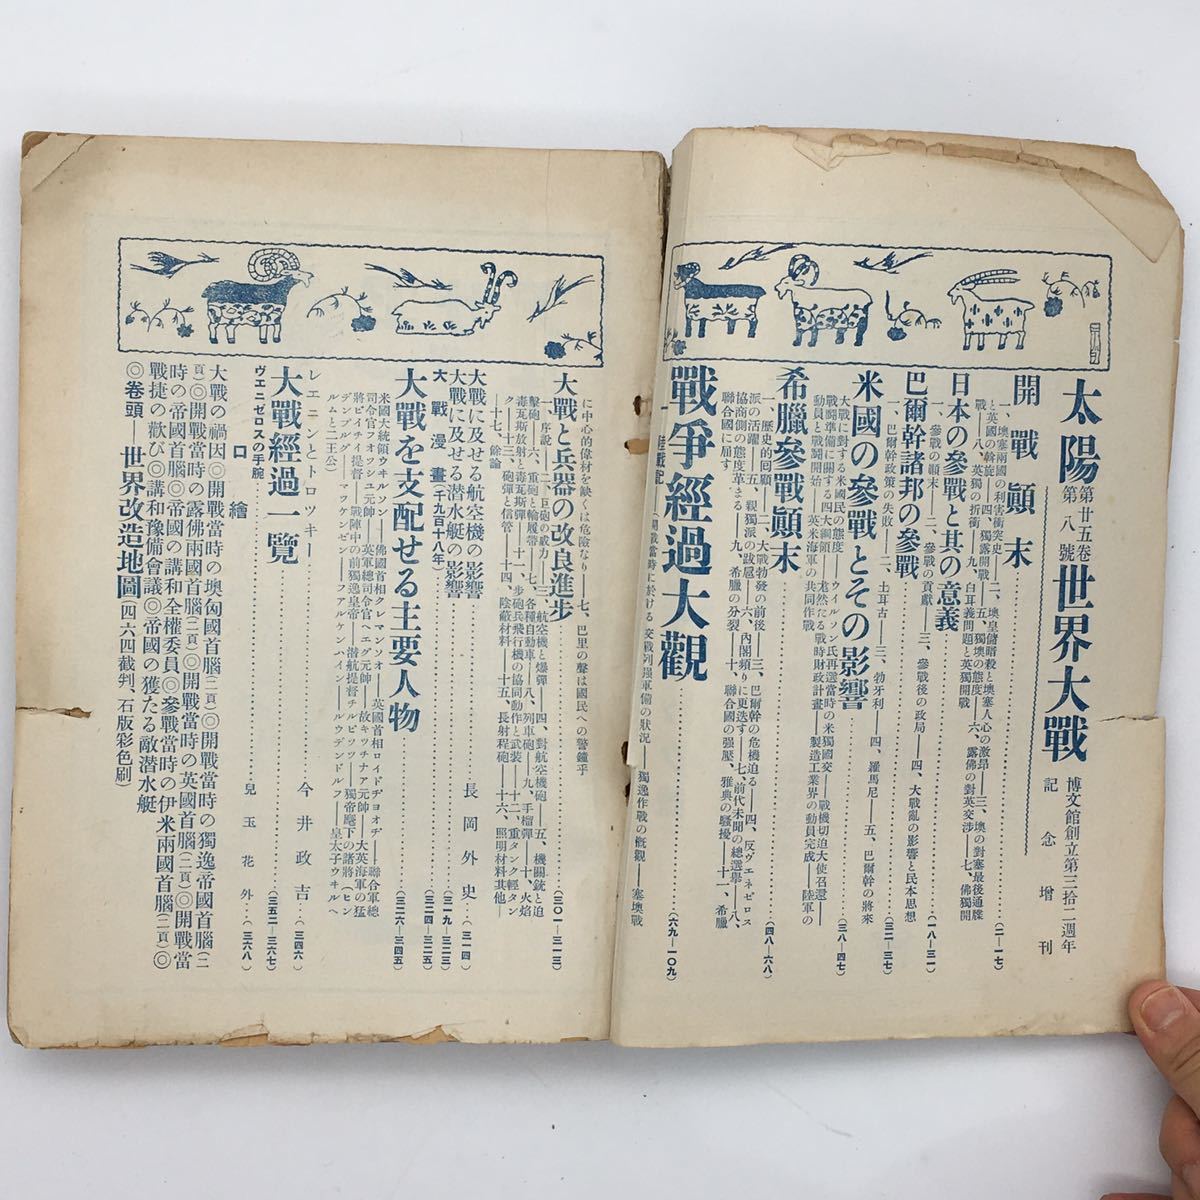 太陽 第廿五卷第八號 世界大戰
博文館創立第三拾二週年
記念增刊
開戰顛末……(二—一七)
一、墺塞兩國の利害衝突史——二、墺皇儲暗殺と墺塞人心の激昂——三、墺の對塞最後通牒
と英國の斡旋——四、獨露開戰——五、獨墺の態度——六、露佛の對英交涉——七、佛獨開
戰——八、英獨の折衝——九、白耳義問題と英獨開戰
日本の參戰と其の意義……(一八—三一)
一、參戰の顛末——二、參戰の貢獻——三、參戰後の政局——四、大戰亂の影響と民本思想
巴爾幹諸邦の參戰……(三二—三七)
一、巴爾幹政策の失敗——二、土耳古——三、勃牙利——四、羅馬尼——五、巴爾幹の將來
米國の參戰とその影響……(三八—四七)
大戰に對する米國民の態度——ウイルソン氏再選當時の米獨國交——戰機切迫大使召還——
戰鬪準備に關する四大綱領——尨然たる戰時財政計畫——製造工業界の動員完成——陸軍の
動員と戰鬪開始——英米海軍の共同作戰
希臘參戰顛末……(四八—六八)
一、歷史的回顧——二、大戰勃發の前後——三、巴爾幹の危機迫る——四、反ヴエネゼロス
派の活躍——五、親獨派の跋扈——六、內閣頻りに更迭す——七、前代未聞の總選擧——八、
協商側の態度革まる——九、希臘の分裂——十、聯合國の强壓、雅典の騷擾——十一、希臘
聯合國に屬す
戰爭經過大觀……(六九—一〇九)
陸戰記——(開戰當時に於ける交戰列强軍備の狀況——獨逸作戰の槪觀——塞墺戰
に中心的偉材を缺くは危險なり——七、巴里の聲は國民への警鐘乎
大戰と兵器の改良進步……(三〇一—三一三)
一、序說——二、巨砲の威力——三、航空機と爆彈——四、對航空機砲——五、機關銃と迫
擊砲——六、重砲と輪履帶——七、各種自動車——八、列車砲——九、手榴彈——十、火焰
毒瓦斯放射と毒瓦斯彈——十一、步砲兵飛行機の協同動作と武裝——十二、重タンク輕タン
ク——十三、砲彈と信管——十四、陰蔽材料——十五、長射程砲——十六、照明材料其他—
—十七、餘論
大戰に及せる航空機の影響……長岡外史…(三一四)
大戰に及せる潜水艇の影響……(三一九—三二三)
大戰漫畫(千九百十八年)……(三二四—三二五)
大戰を支配せる主要人物……(三二六—三四五)
米國大統領ウヰルソン——佛國首相クレマンソオ——英國首相ロイドヂヨオヂ——聯合軍總
司令官フオツシユ元帥——英軍總司令官ヘエグ元帥——故キツチナア元帥——大英海軍の猛
將ビイテイ提督——戰陣中の前獨逸皇帝——潜航提督チルピツツ——獨帝麾下の諸將(ヒン
デンブルグ——マツケンゼン——フアルケンハイン——ルウデンドルフ——皇太子ウヰルヘ
ルムと二王公)
レエニンとトロツキー……今井政吉…(三四六)
大戰經過一覽……(三五二—三六七)
ヴエニゼロスの手腕……兒玉花外…(三六八)
口繪
大戰の禍因◎開戰當時の墺匈國首腦(二頁)◎開戰當時の獨逸帝國首腦(二
頁)◎開戰當時の露佛兩國首腦(二頁)◎開戰當時の英國首腦(二頁)◎開戰當
時の帝國首腦◎帝國の講和全權委員◎參戰當時の伊米兩國首腦(二頁)◎
戰捷の歡び◎講和豫備會議◎帝國の獲たる敵潜水艇
◎卷頭——世界改造地圖(四六四截判、石版彩色刷)